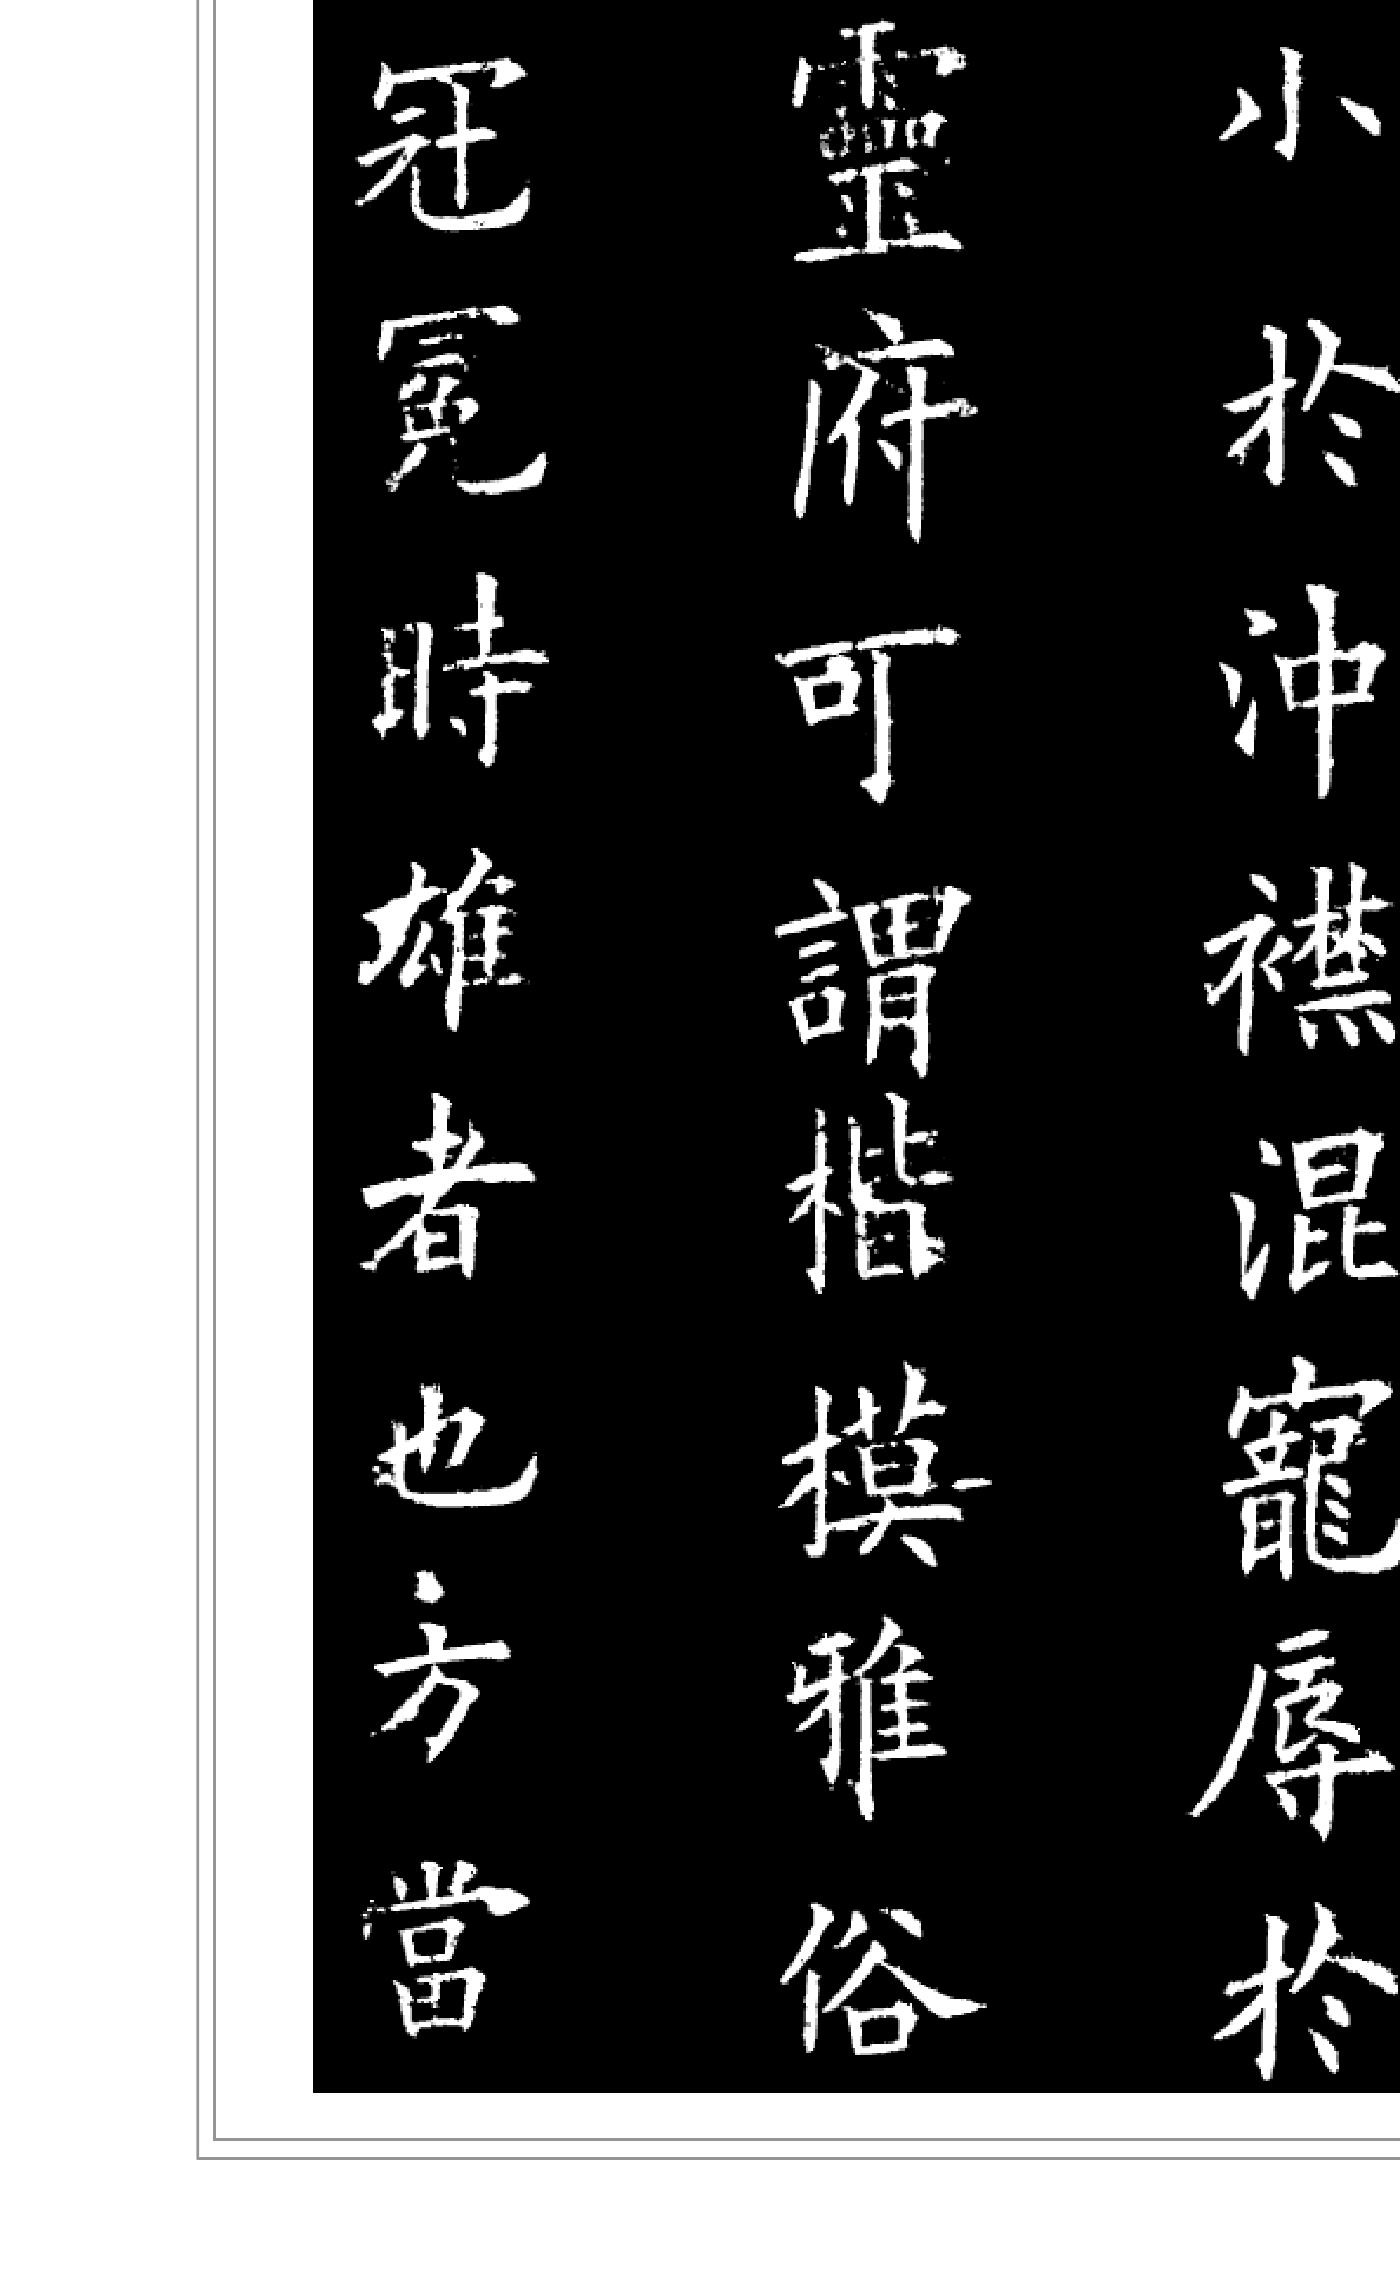 小於沖襟混寵辱於
靈府可謂楷模雅俗
冠冕時雄者也方當